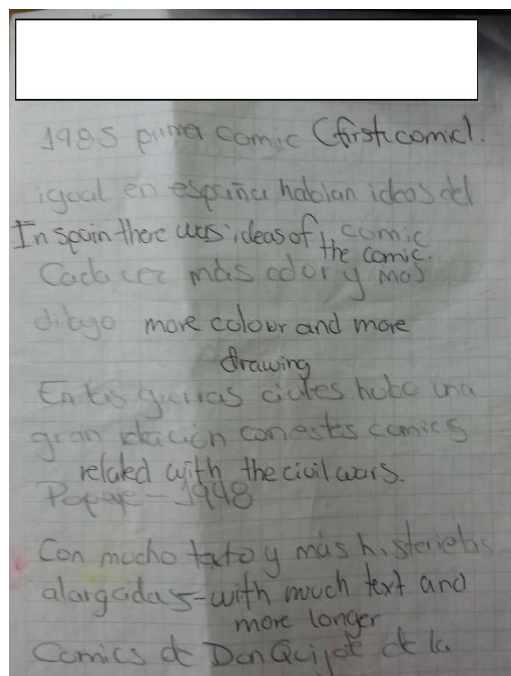 1985 primer comic (first comic).
igual en españa habían ideas del
comic
In spain there was ideas of the comic.
Cada vez más color y mas
dibujo more colour and more
drawing
En las guerras civiles hubo una
gran relación con estos comics
related with the civil wars.
Popeye - 1948
Con mucho texto y más historietas
alargadas - with much text and
more longer
Comics de Don Quijote de la